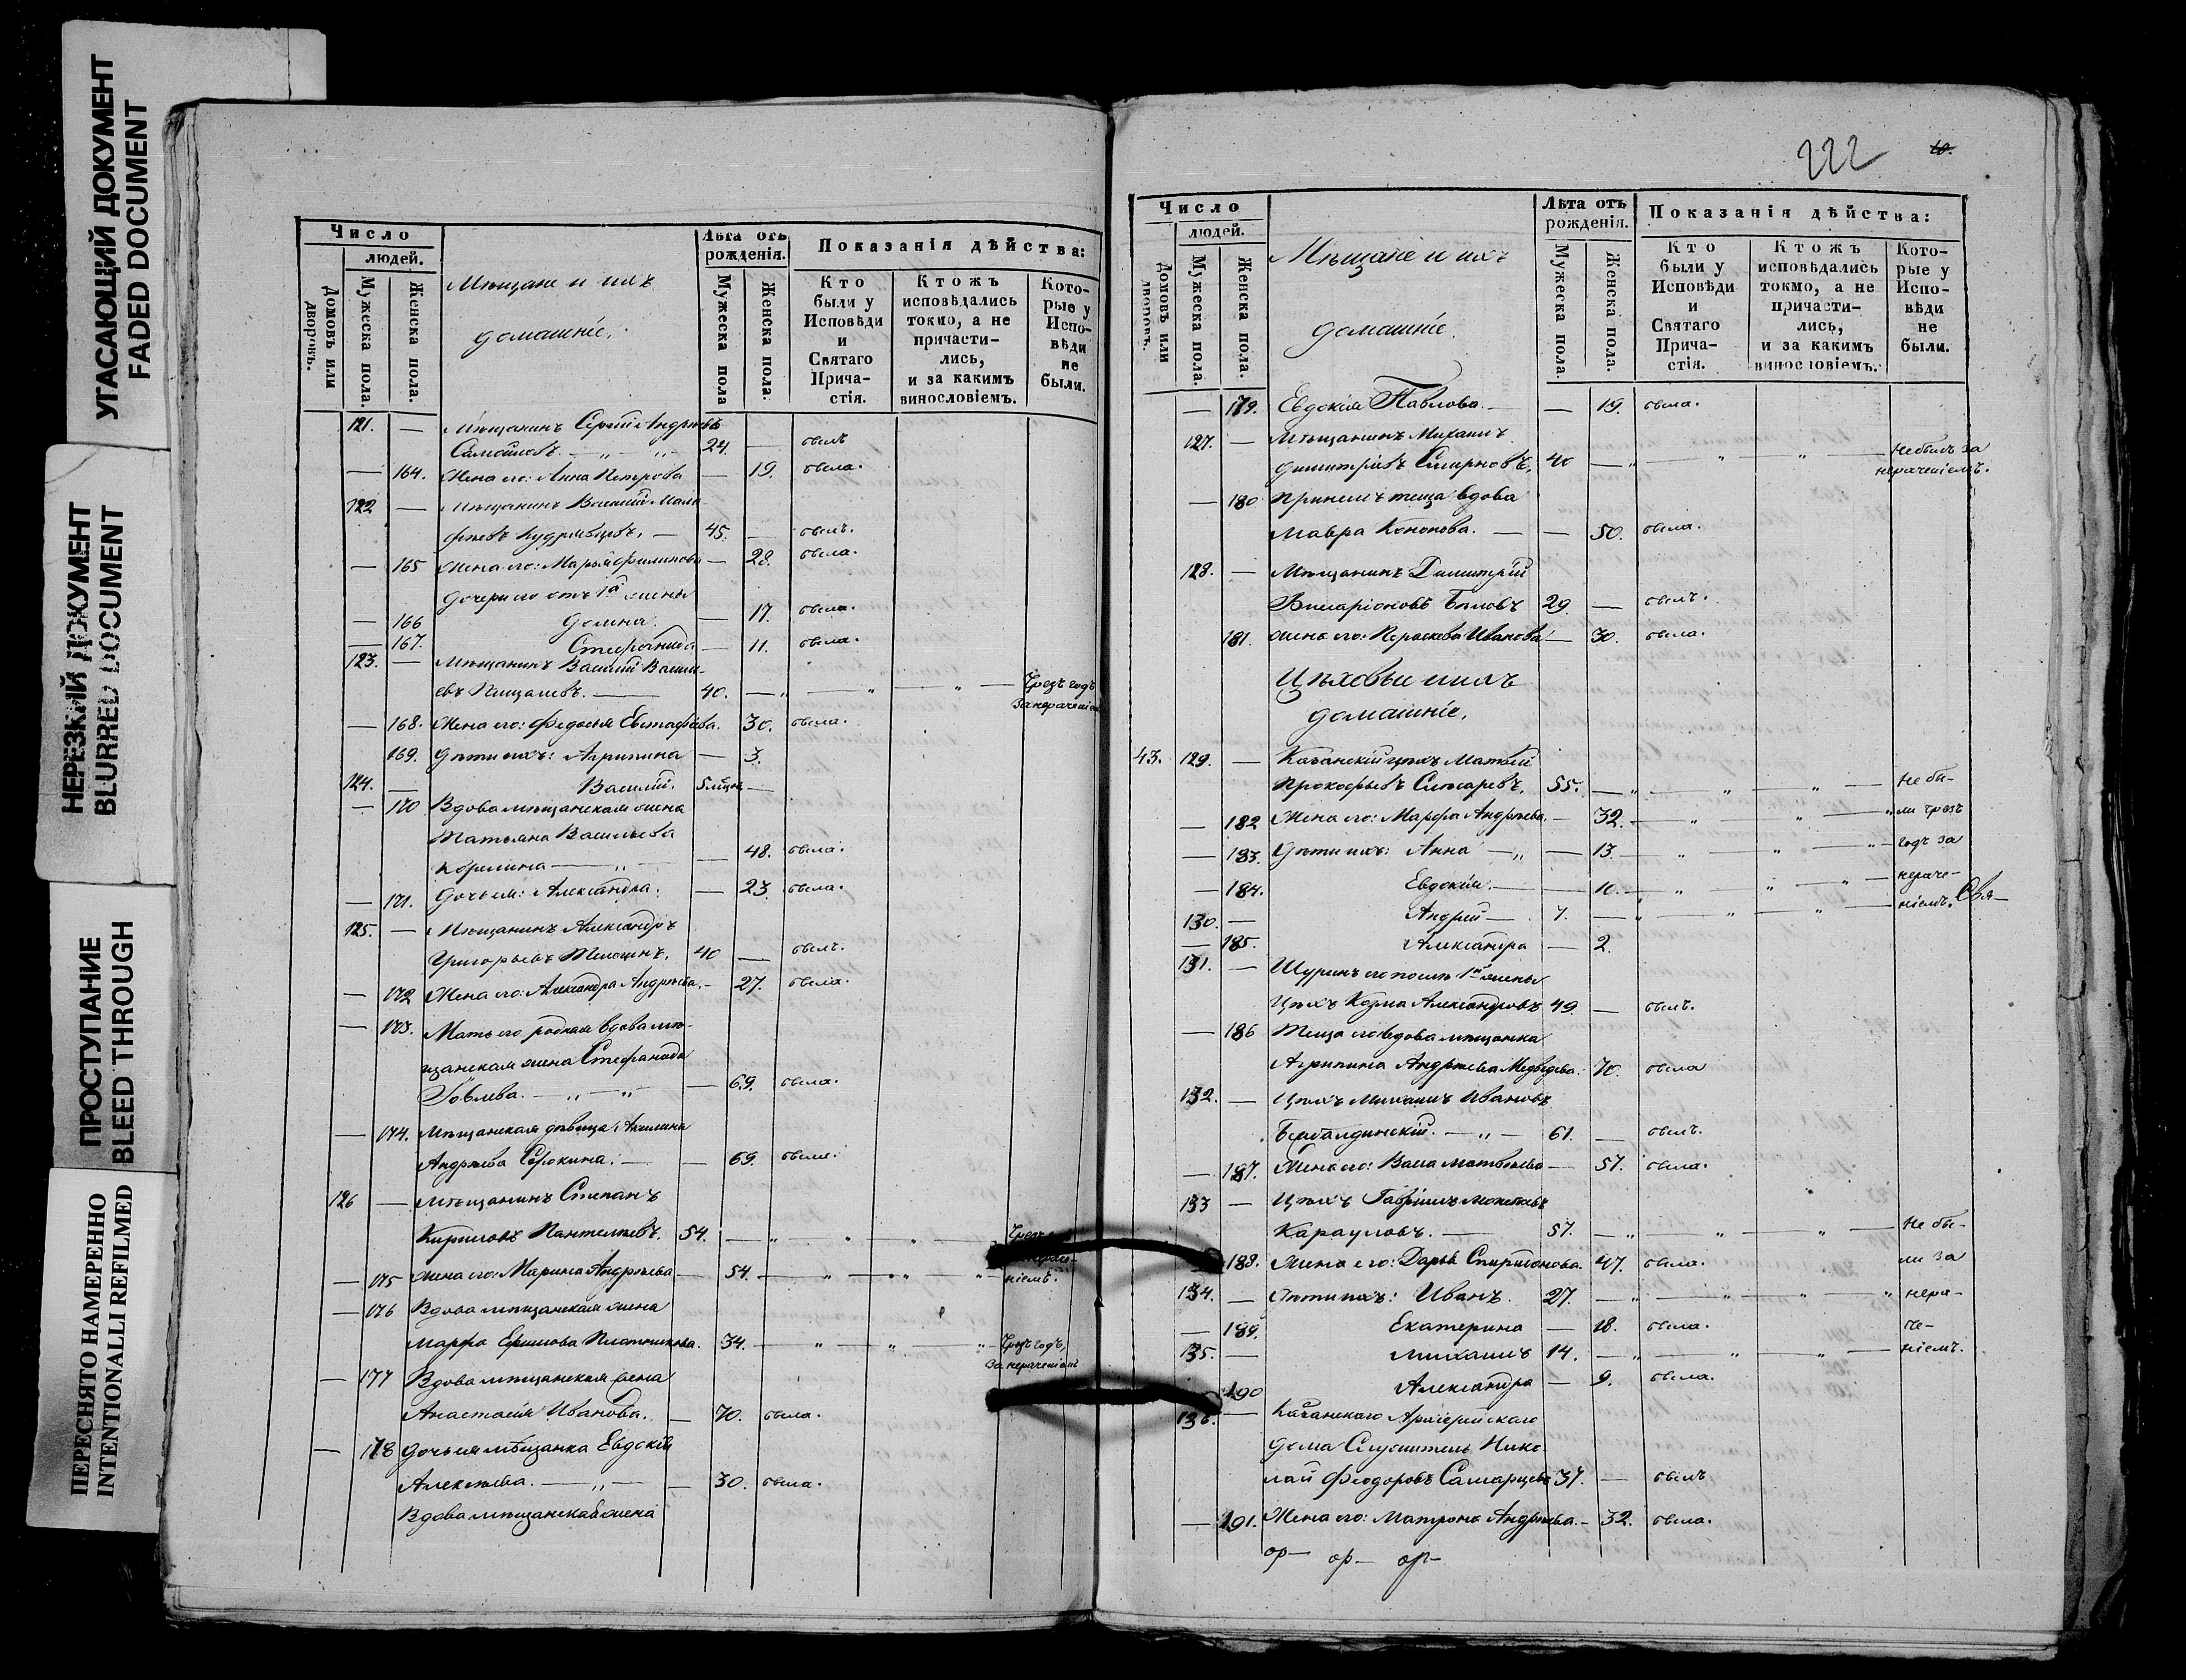 УГАСАЮЩИЙ ДОКУМЕНТ
FADED DOCUMENT
НЕРЕЗКИЙ ДОКУМЕНТ
BLURRED DOCUMENT
ПРОСТУПАНИЕ
BLEED THROUGH
ПЕРЕСНЯТО НАМЕРЕННО
INTENTIONALLI REFILMED
Число
людей.
Домовъ или дворовъ.
Мужеска пола.
Женска пола.
Мѣщане и ихъ
домашніе.
Лѣта отъ рожденія.
Мужеска пола
Женска пола.
Показанія дѣйства:
Кто были у Исповѣди и Святаго Прича-стія.
Ктожъ исповѣдались токмо, а не причасти-лись, и за какимъ винословіемъ.
Кото-рые у Испо-вѣди не были.
121. — Мѣщанинъ Сергій Андреевъ
24. — былъ
— 164. Жена его: Анна Петрова — 19. была.
122 — Мѣщанинъ Василій
Кудрявцевъ. — 45. — былъ.
— 165 Жена его: Марья Филипова — 28. была.
Дочери его отъ 1й жены
— 166 — 17. была.
— 167. Стефанида — 11. была.
123. — Мѣщанинъ Василій Василь-
евъ 40. — Чрезъ годъ
за нераченіемъ
— 168. Жена его: Федосья Евстафіева. 30. была.
169. Дѣти ихъ: Агрипина — 3.
124. — Василій. 5 мѣцов —
— 170 Вдова мѣщанская жена
Татьяна Васильева
— 48. была.
— 171. Дочь ея: Александра. — 23. была.
125. — Мѣщанинъ Александръ
Григорьевъ 40 — былъ.
— 172 Жена его: Александра Андреева. — 27. была.
— 173. Мать его родная вдова мѣ-
щанская жена Стефанида
— 69. была.
— 174. Мѣщанская дѣвица Акилина
Андреева Сорокина. — 69. была.
126 — Мѣщанинъ Степанъ
Кириловъ Пантелеевъ. 54. — Чрезъ
— 175 Жена его: Марина Андреева — 54. — ніемъ.
— 176 Вдова мѣщанская жена
Марфа Ефимова 34. — Чрезъ годъ,
за нераченіемъ
— 177 Вдова мѣщанская жена
Анастасія Иванова. — 70. была.
— 178 Дочь ея мѣщанка Евдокія
Алексеева. — 30. была.
Вдова мѣщанская жена
222
10.
Число
людей.
Домовъ или дворовъ.
Мужеска пола.
Женска пола.
Мѣщане и ихъ
домашніе
Лѣта отъ рожденія.
Мужеска пола.
Женска пола.
Показанія дѣйства:
Кто были у Исповѣди и Святаго Прича-стія.
Ктожъ исповѣдались токмо, а не причасти-лись, и за какимъ винословіемъ.
Кото-рые у Испо-вѣди не были.
— 179. Евдокія Павлова. — 19. была.
127. — Мѣщанинъ Михаилъ
Димитріевъ Смирновъ. 40 — Не былъ за
нераченіемъ.
— 180 При немъ теща вдова
Мавра Кононова. — 50. была.
128. — Мѣщанинъ Димитрій
Виссаріоновъ Бѣловъ 29. — былъ.
181. Жена его: Параскева Иванова — 30. была.
Цѣховые и ихъ
домашніе.
43. 129. — Казанскій цѣхъ Матвѣй
Прокофьевъ 55. — Не бы-
— 182 Жена его: Марфа Андреева. — 32. — ли чрезъ
— 183. Дѣти ихъ: Анна — 13. — годъ за
— 184. Евдокія — 10. — нераче-
130. — Андрей — 7. — ніемъ.
— 185. Александра — 2.
131. — Шуринъ его по 1й жены
Цѣхъ Козма Александровъ 49. — былъ.
— 186 Теща его вдова мѣщанка
Агрипина Андреева Медведева. 70. была
132. — Цѣхъ Михаилъ Ивановъ
61. — былъ.
— 187. Жена его: Васса Матвеева — 57. была.
133 — Цѣхъ Гавріилъ
Карауловъ. — 57. — Не бы-
188. Жена его: Дарья Спиридонова. 47. была. ли за
134. — Дѣти ихъ: Иванъ. 27. — нера-
— 189. Екатерина — 18. была. че-
135. — Михаилъ 14. — ніемъ.
190 Александра — 9. была.
136. — Казанскаго Архіерейскаго
дома Служитель Нико-
лай Феодоровъ Самарцевъ 37. — былъ
— 191. Жена его: Матрона Андреева. — 32. была.